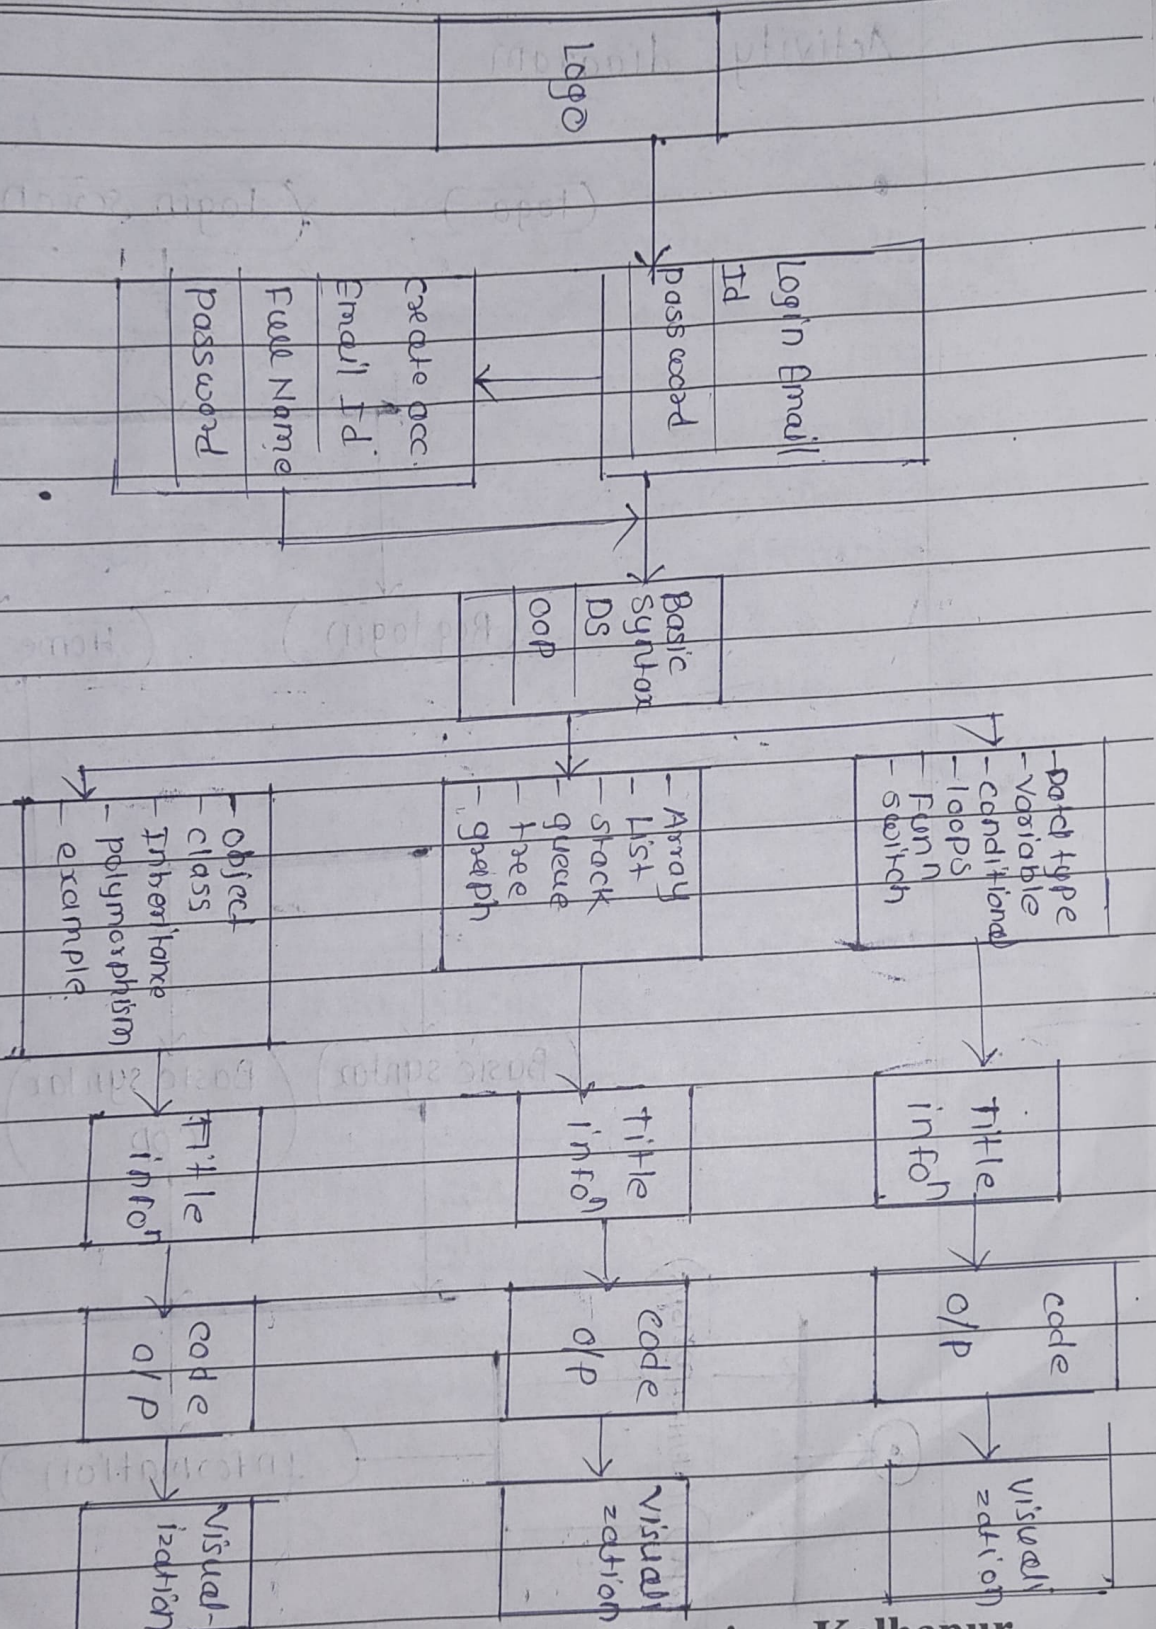 Logo
Login Email
Id
password
create acc.
Email Id
Full Name
password
Basic
syntax
DS
OOP
- Data type
- variable
- conditional
- loops
- Funn
- switch
- Array
- List
- stack
- queue
- tree
- graph
- object
- class
- Inheritance
- polymorphism
- example.
Title
infon
Title
infon
Title
infon
code
o/p
code
o/p
code
o/p
visuali
zation
visuali
zation
visual-
ization